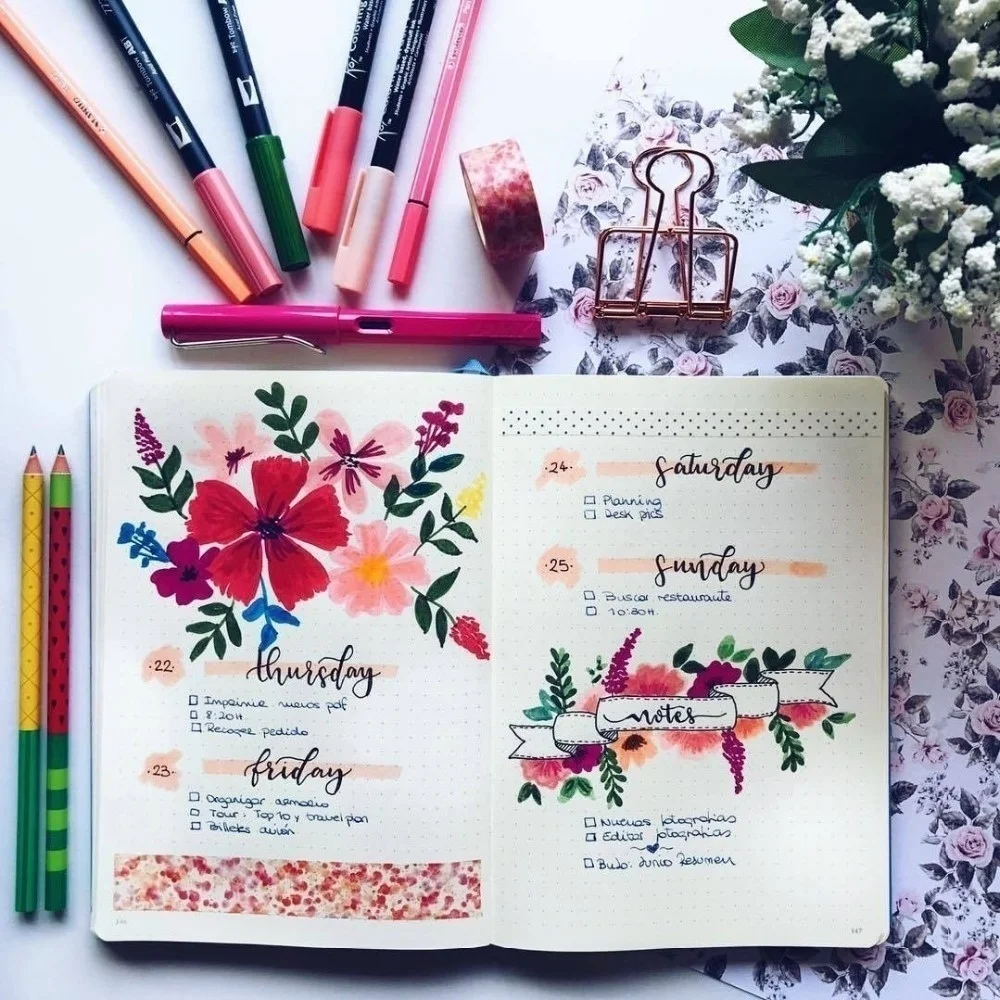 STABILO
Tombow ABT
Tombow
Koi Coloring
Water based
Thursday
·22·
Imprimir nuevos pdf
8:20H
Recoger pedido
friday
·23·
Organizar armario
Tour: Top 10 y travel plan
Billetes avión
146
Saturday
·24·
Planning
Desk pics
Sunday
·25·
Buscar restaurante
10:30H
notes
Nuevas fotografías
Editar fotografías
BuJo: Junio Resumen
147